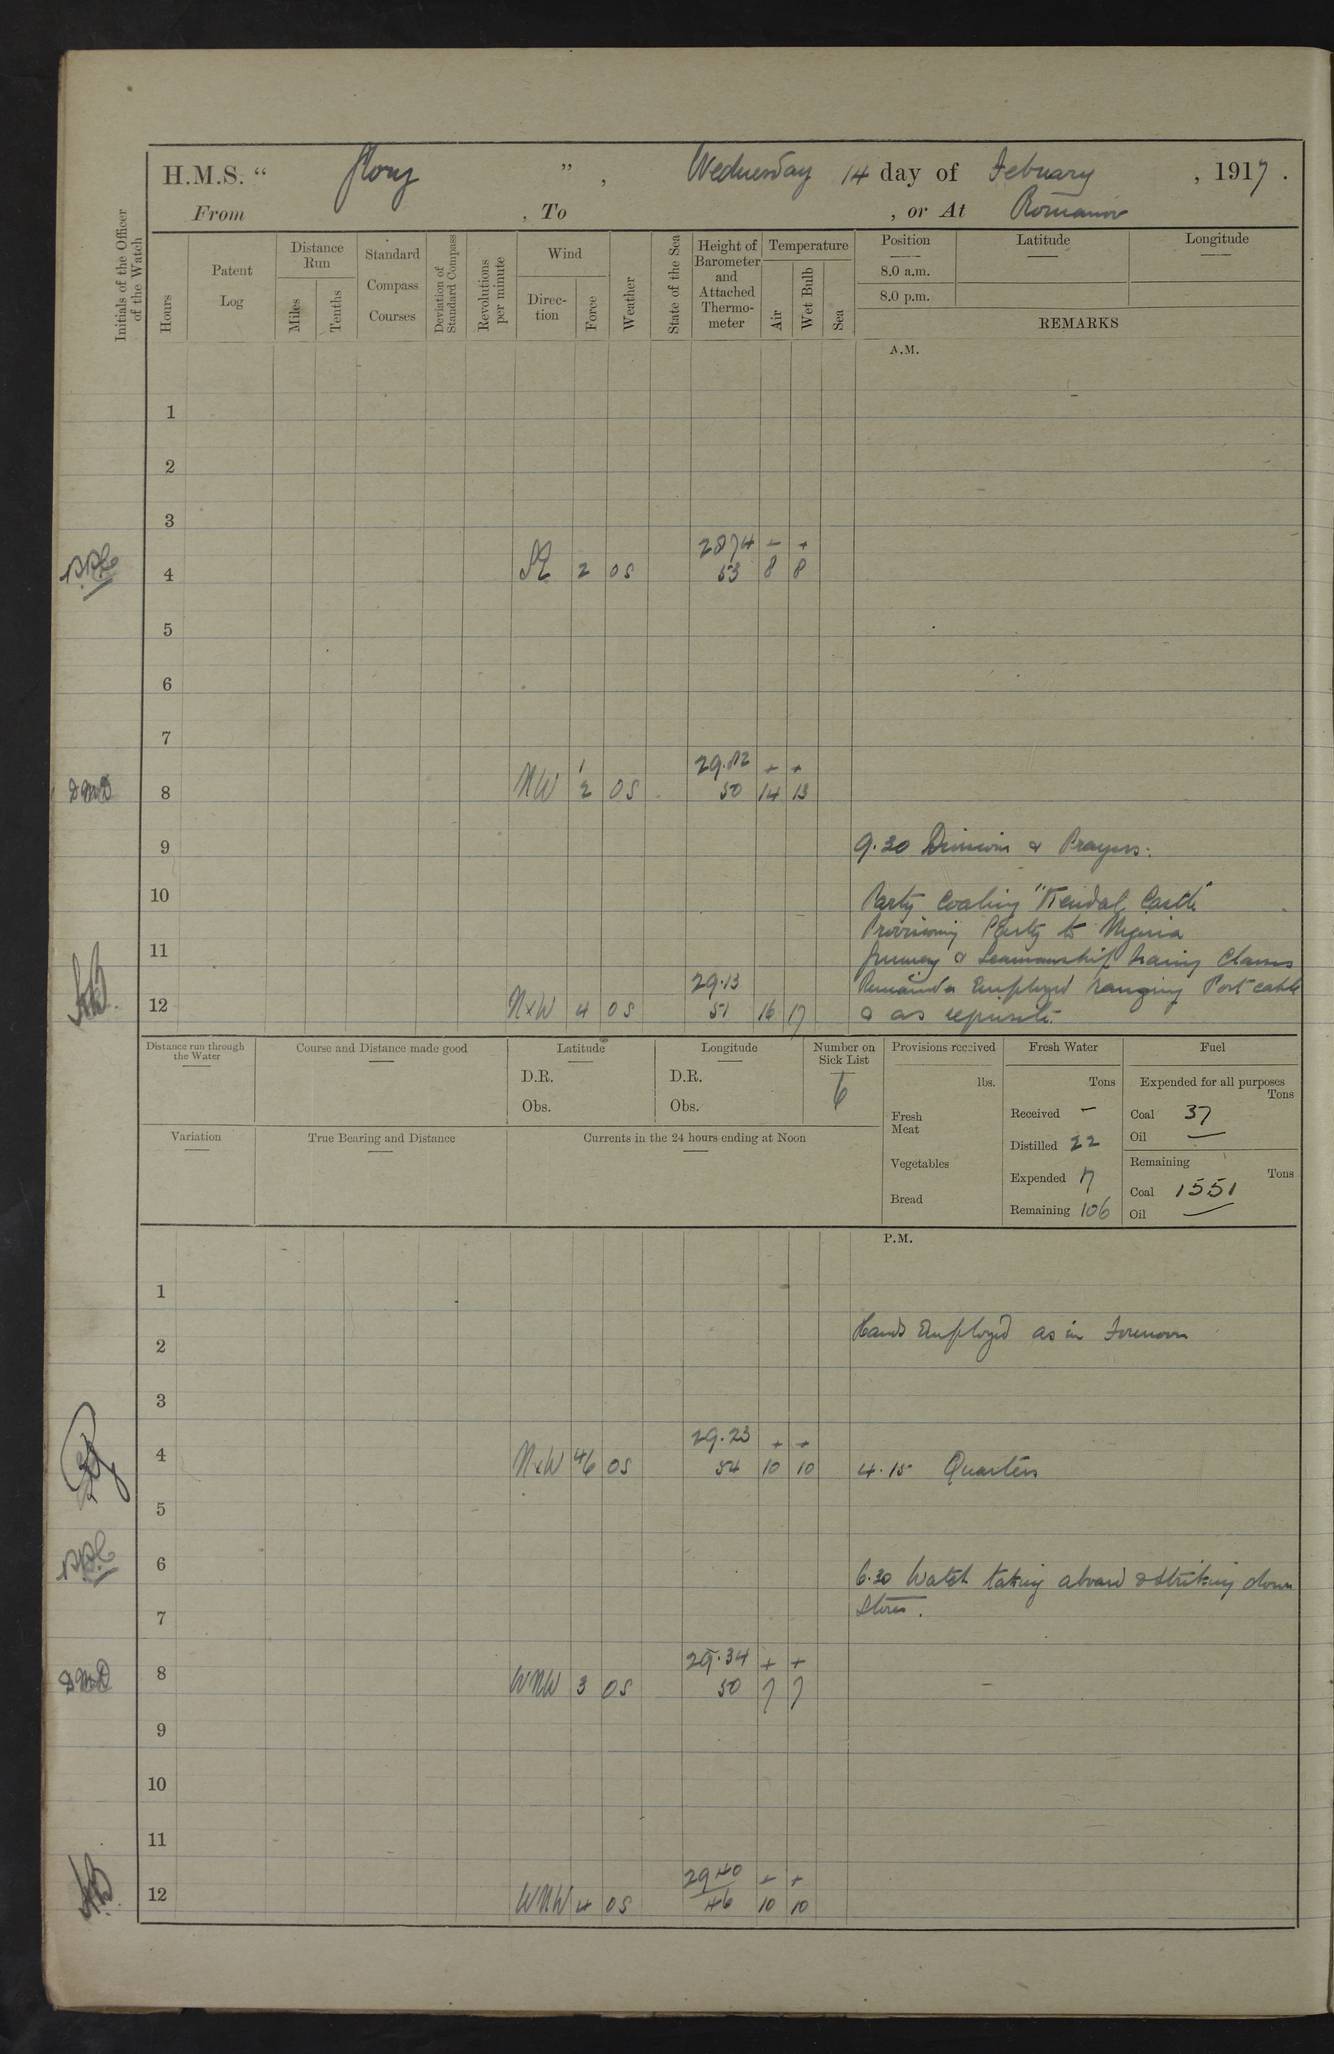 H.M.S. “ Glory ” , Wednesday 14 day of February , 1917 .
From , To , or At Romanov
Initials of the Officer of the Watch
Hours
Patent Log
Distance Run
Miles
Tenths
Standard Compass Courses
Deviation of Standard Compass
Revolutions per minute
Wind
Direction
Force
Weather
State of the Sea
Height of Barometer and Attached Thermometer
Temperature
Air
Wet Bulb
Sea
Position
8.0 a.m.
8.0 p.m.
Latitude
Longitude
REMARKS
A.M.
1
2
3
2874 - +
4 SE 2 OS 53 8 8
5
6
7
29.02 + +
8 NW 1 2 OS 50 14 13
9 9.30 Divisions & Prayers.
10 Party Coaling "Kendal Castle"
Provisioning Party to Nigeria
11 Gunnery & Seamanship training Classes
29.13 Remainder Employed ranging Port cable
12 NxW 4 OS 51 16 17 & as requisite.
Distance run through the Water
Course and Distance made good
Latitude
D.R.
Obs.
Longitude
D.R.
Obs.
Number on Sick List
6
Variation
True Bearing and Distance
Currents in the 24 hours ending at Noon
Provisions received
lbs.
Fresh Meat
Vegetables
Bread
Fresh Water
Tons
Received -
Distilled 22
Expended 17
Remaining 106
Fuel
Expended for all purposes
Tons
Coal 37
Oil —
Remaining
Tons
Coal 1551
Oil —
P.M.
1
2 Hands Employed as in Forenoon
3
29.23 + +
4 NxW 4/6 OS 54 10 10 4.15 Quarters
5
6 6.30 Watch taking aboard & striking down
7 Stores.
29.34 + +
8 WNW 3 OS 50 7 7
9
10
11
2940 + +
12 WNW 4 OS 46 10 10